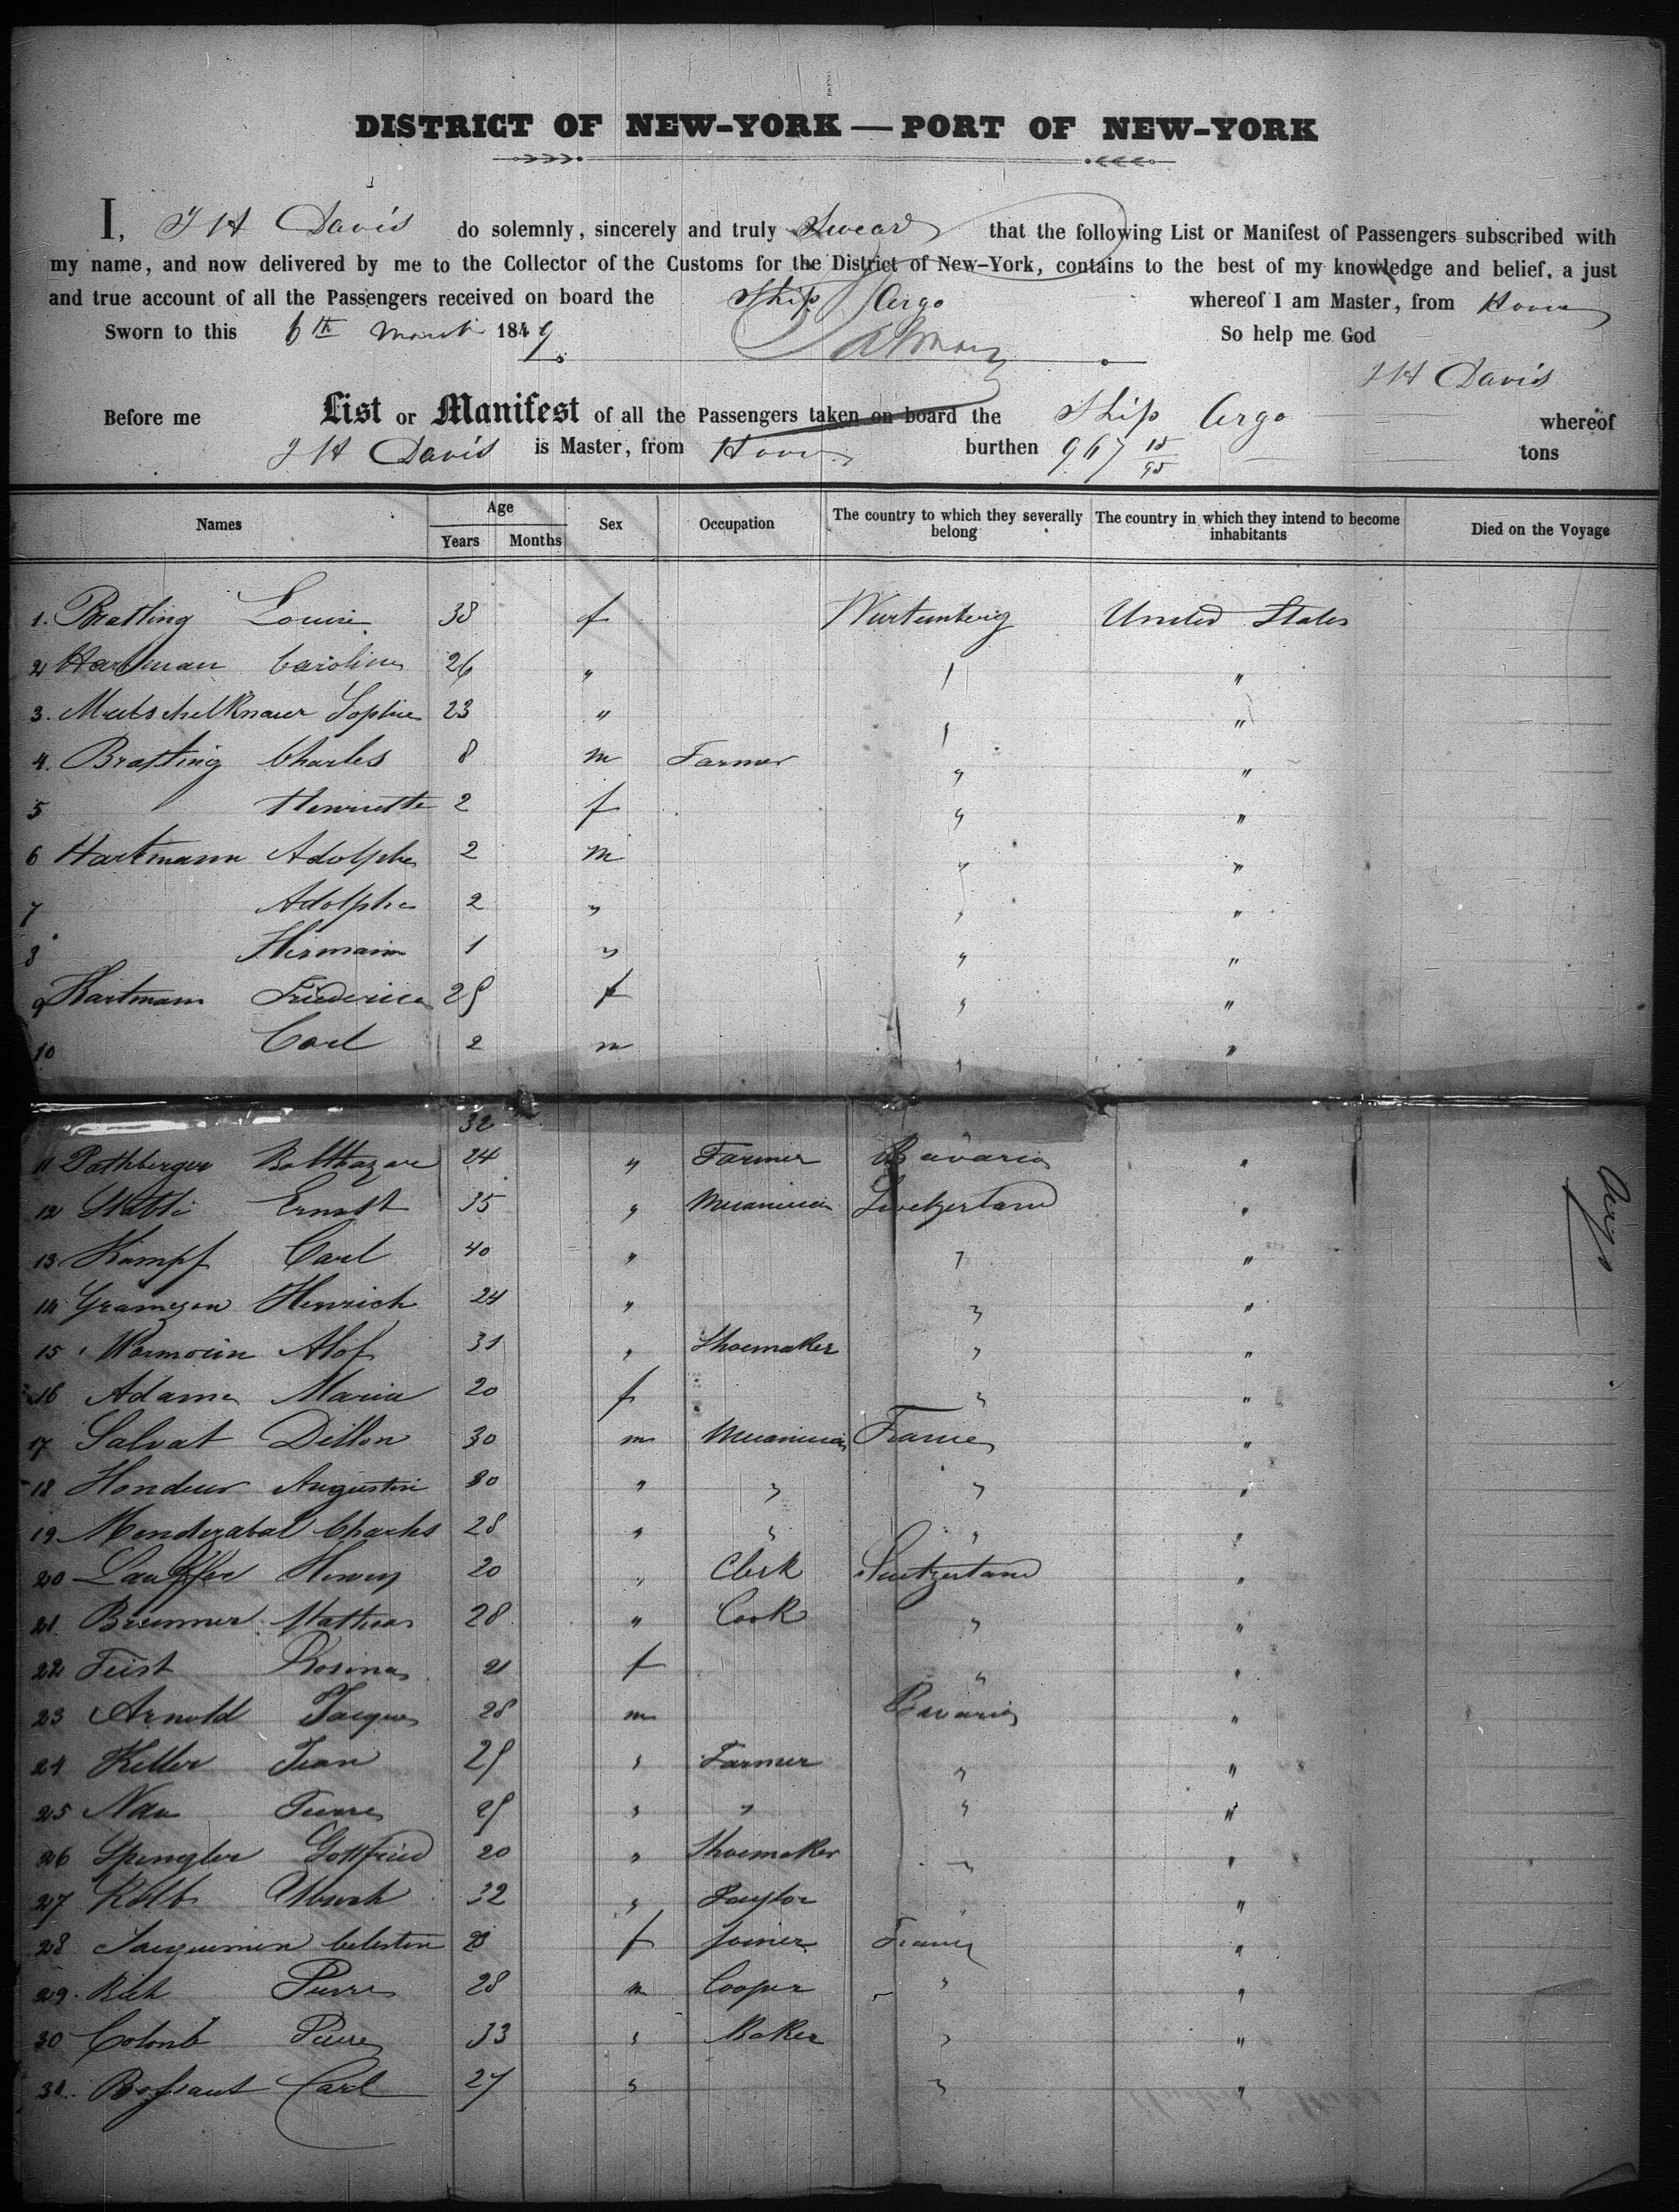 DISTRICT OF NEW-YORK — PORT OF NEW-YORK
I, J H Davis do solemnly, sincerely and truly Swear that the following List or Manifest of Passengers subscribed with
my name, and now delivered by me to the Collector of the Customs for the District of New-York, contains to the best of my knowledge and belief, a just
and true account of all the Passengers received on board the Ship Argo whereof I am Master, from Havre
Sworn to this 6th March 1849 So help me God
J H Davis
Before me List or Manifest of all the Passengers taken on board the Ship Argo whereof
J H Davis is Master, from Havre burthen 967 15/95 tons
Names Age Years Months Sex Occupation The country to which they severally belong The country in which they intend to become inhabitants Died on the Voyage
1. Bratting Louise 38 f Wurtemberg United States
2 Hartman Caroline 26 " "
3. Mutschelknauer Sophie 23 " "
4. Bratting Charles 8 m Farmer " "
5 Henriette 2 f " "
6 Hartmann Adolphe 2 m " "
7 Adolphe 2 " " "
8 Hermann 1 " " "
9 Hartmann Friederica 29 f " "
10 Carl 2 m " "
32
11 Balthazare 24 " Farmer Bavaria "
12 Ernest 35 " Mecanician Switzerland "
13 Kampf Carl 40 " " "
14 Henrich 24 " " "
15 31 " Shoemaker " "
16 Adame Maria 20 f " "
17 Salvat Dillon 30 m Mecanician France "
18 Hondeur Augustin 30 " " " "
19 Menderabal Charles 28 " " " "
20 Henry 20 " Clerk Switzerland "
21. Brunner Mathias 28 " Cook " "
22 Feist Rosina 21 f " "
23 Arnold Jacques 28 m Bavaria "
24 Keller Jean 29 " Farmer " "
25 Nau Pierre 29 " " " "
26 Spengler Gottfried 20 " Shoemaker " "
27 Kolb 32 " Taylor "
28 Jacquemin Celestin f Joiner France "
29. Pierre 28 m Cooper " "
30 Colomb Pierre 33 " Baker " "
31. Bossaut Carl 27 " " "
Argo